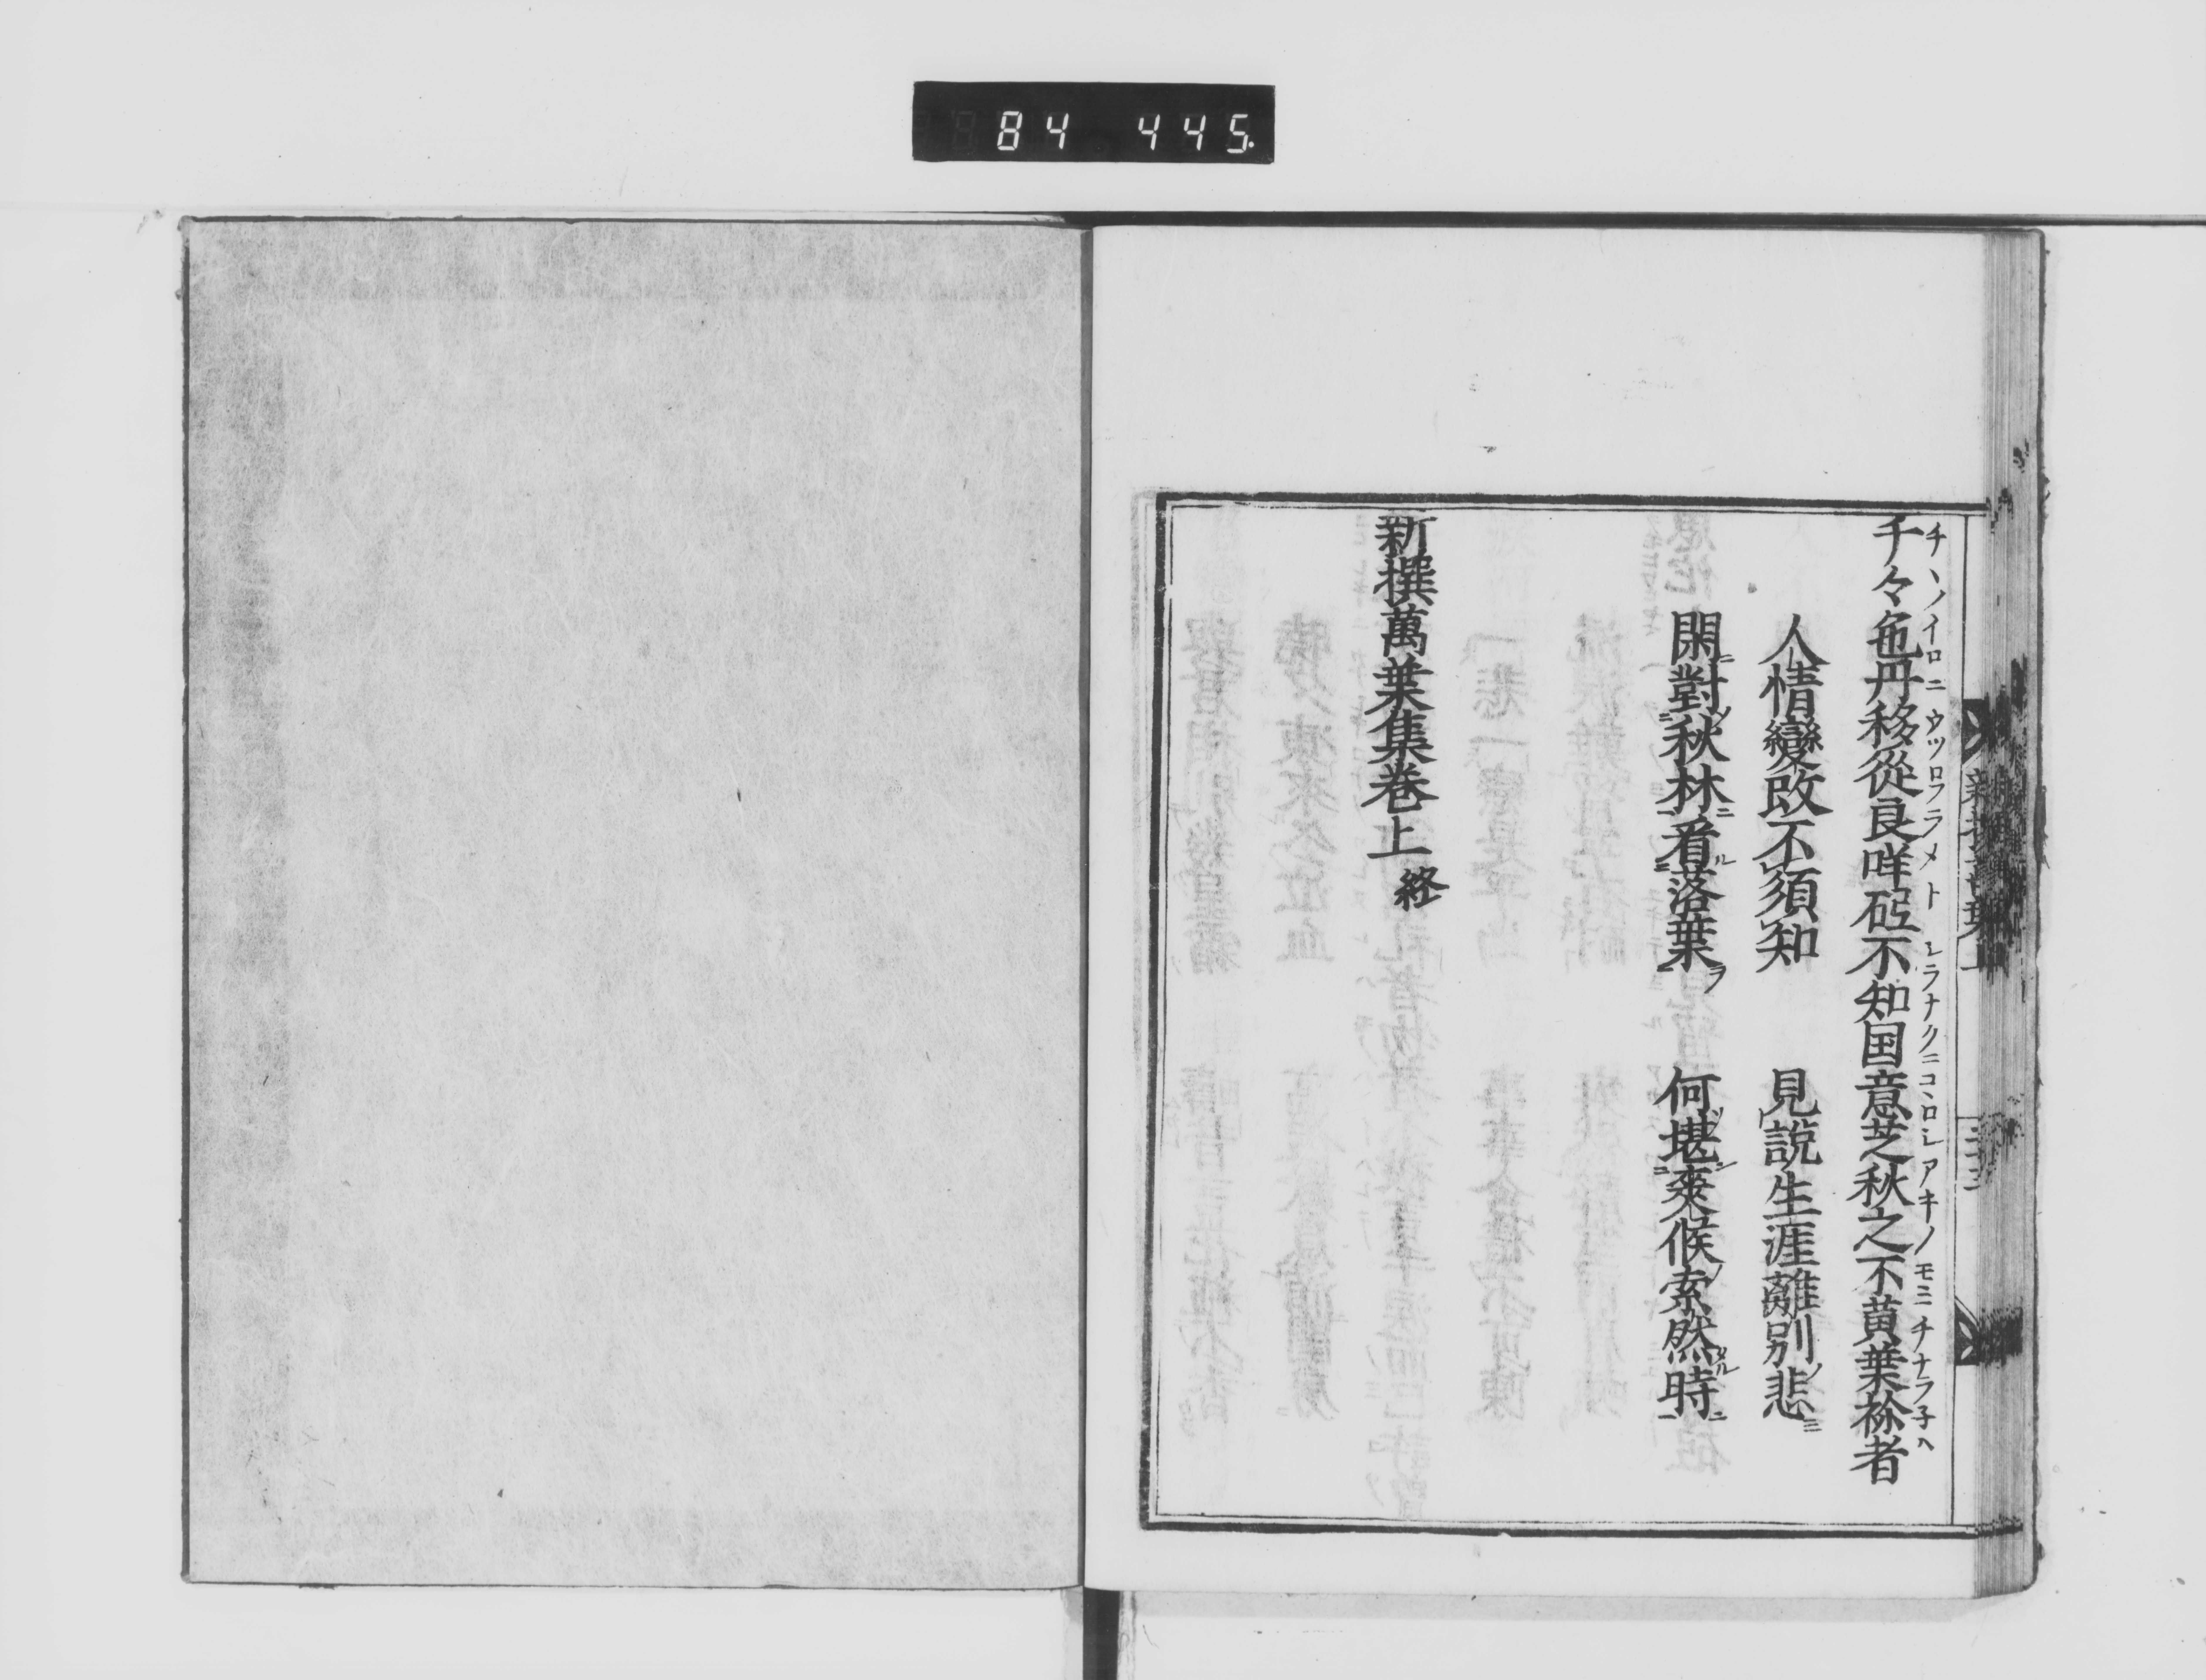 84 445.
千々色丹移徙良咩砳不知国意芝秋之不黄葉祢者
チヽノイロニウツロフラメトシラナクニコヽロシアキノモミチナラ子ハ
人情變改不須知 見說生涯離別悲
閑對秋林看落葉 何堪爽候索然時
新撰萬葉集巻上 終